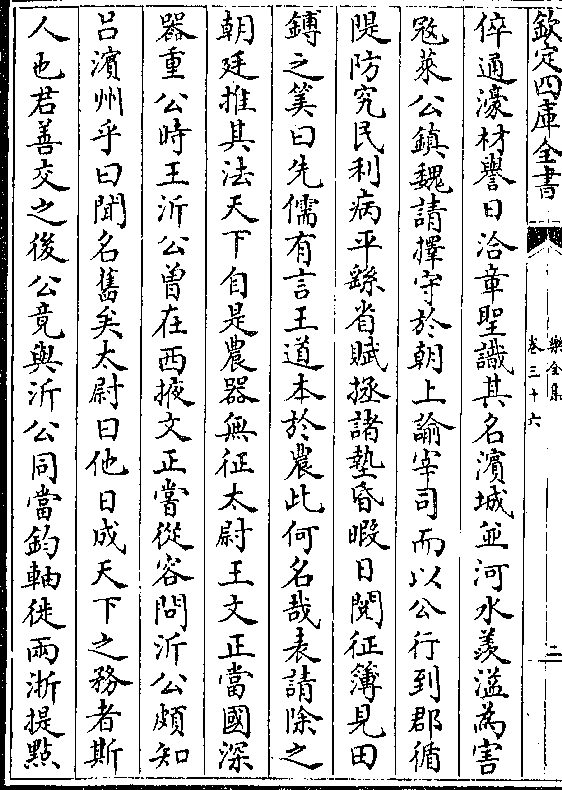 欽定四庫全書
樂全集
卷三十六
二
倅通濠材譽日洽章聖識其名濱城並河水羨溢為害
冦萊公鎮魏請擇守於朝上諭宰司而以公行到郡循
隄防究民利病平繇省賦拯諸墊昏暇日閱征簿見田
鎛之筭曰先儒有言王道本於農此何名哉表請除之
朝廷推其法天下自是農器無征太尉王文正當國深
器重公時王沂公曽在西掖文正嘗從容問沂公頗知
吕濱州乎曰聞名舊矣太尉曰他日成天下之務者斯
人也君善交之後公竟與沂公同當鈞軸徙兩浙提㸃